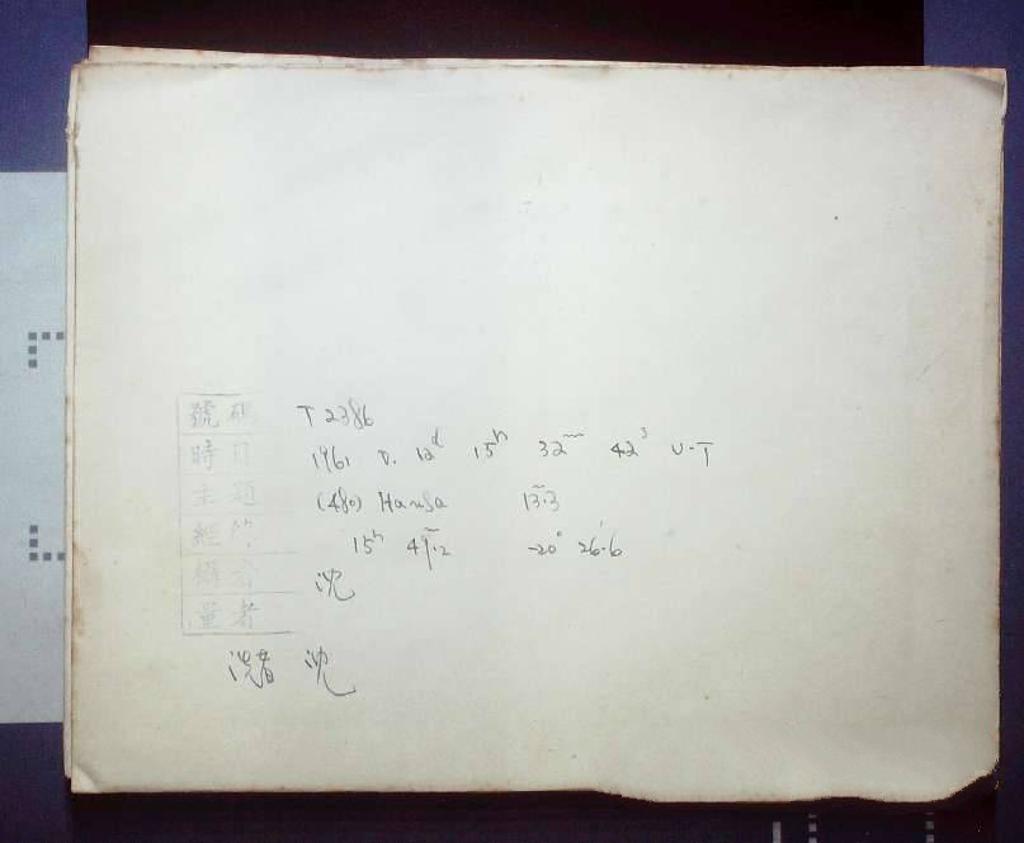 號碼 T 2386
時日 1961 V. 12ᵈ 15ʰ 32ᵐ 42ˢ U-T
主題 (480) Hansa 13ᵐ.3
經緯 15ʰ 49ᵐ.2 -20° 26'.6
攝者 沈
量者
洗者 沈